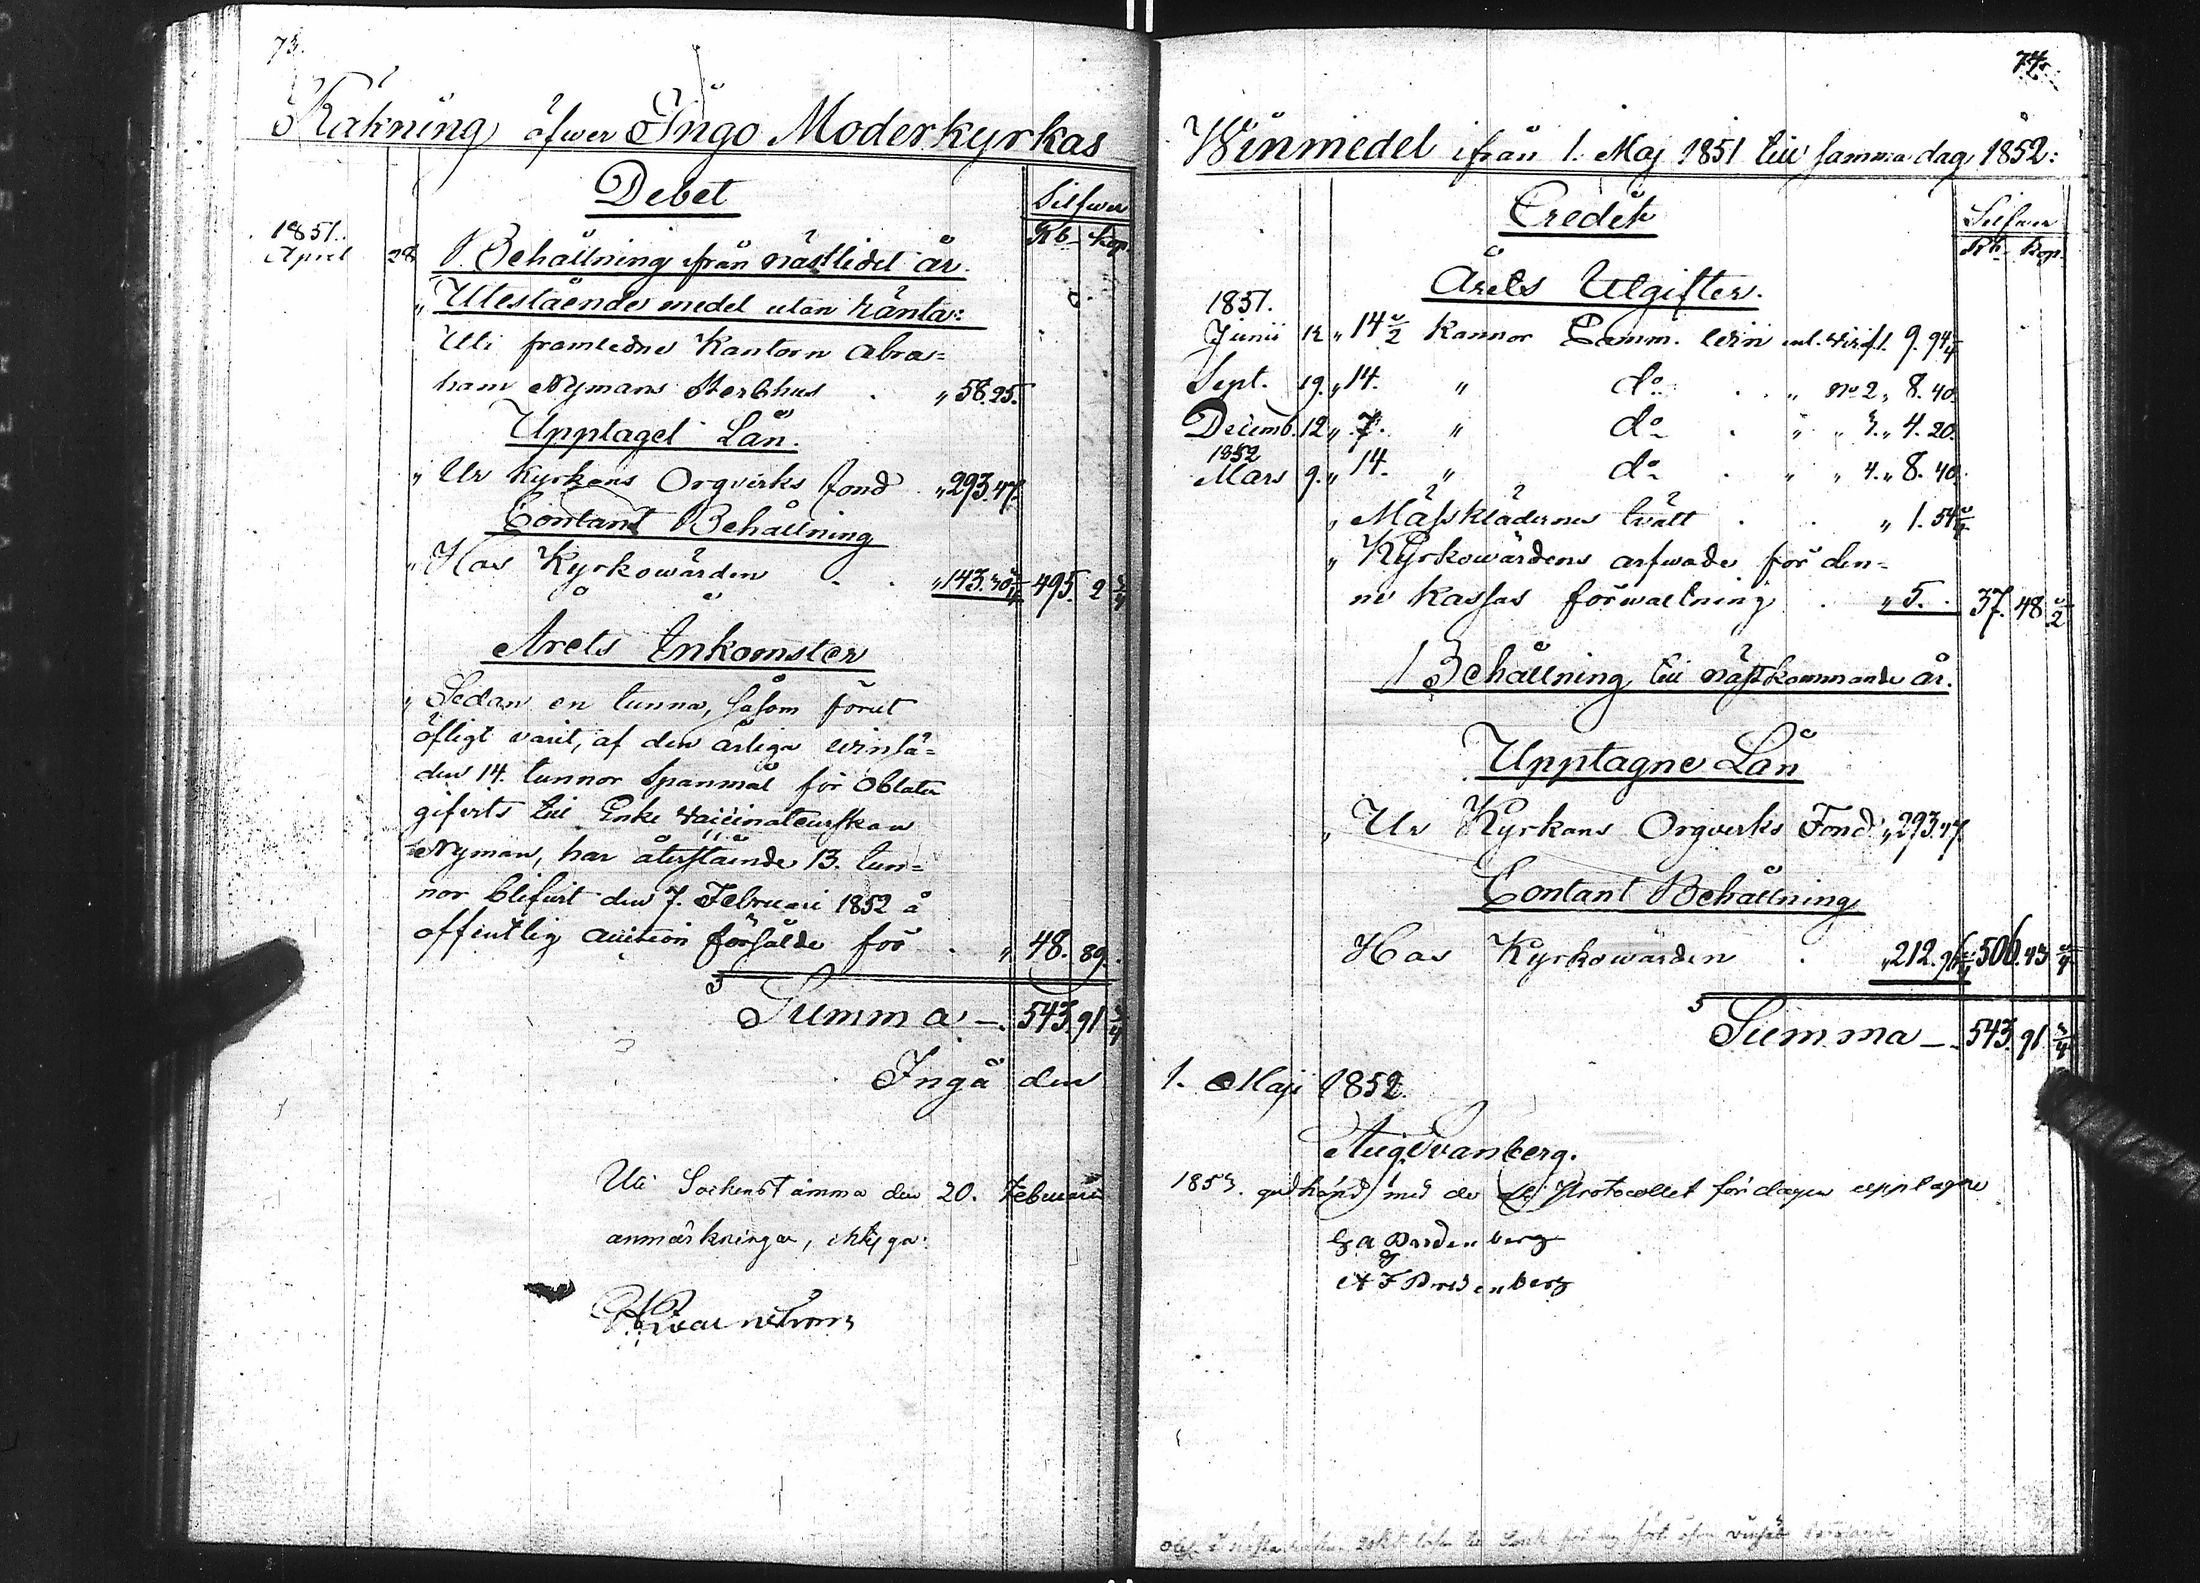 73.
Räkning öfwer Ingo Moderkyrkas
Debet
Silfwer
Rb. Kop.
1851.
April 28 Behållning ifrån nästlidet år.
" Utestående medel utan ränta:
Uti framledne Kantorn Abra=
ham Nymans Sterbhus . " 58. 25.
Upptaget Lån.
" Ur Kyrkans Orgverks fond . " 293. 47.
Contant Behållning
" Hos Kyrkowärden . . " 143. 30 3/4 495. 2 3/4
Årets Inkomster
" Sedan en tunna, såsom förut
öfligt varit, af den årliga winsä=
den 14. tunnor Spanmål för Oblater
gifvits till Enke Vaccinateurskan
Nyman, har återstående 13. tun=
nor blifvit den 7. Februari 1852 å
offentlig auction försålde för . " 48. 89.
Summa — 543. 91 3/4
Ingå den
Uti Sockenstämma den 20. Februarii
anmärkningar,
74.
Winmedel ifrån 1. Maj 1851 till samma dag 1852:
Credit
Silfwer
Rb. Kop.
Årets Utgifter.
1851.
Junii 12 " 14 1/2 Kannor Comm. win enl. Verif. 1. 9. 94 1/4
Sept. 19. " 14. " do . . " No 2 " 8. 40.
Decemb. 12 " 7. " do . " " 3. " 4. 20.
1852
Mars 9. " 14. " do . " " 4. " 8. 40.
" Mässklädernes tvätt . . " 1. 54 1/4
" Kyrkowärdens arfwode för den=
ne Kassas förwaltning . " 5. . 37. 48 1/2
Behållning till nästkommande år.
Upptagne Lån
" Ur Kyrkans Orgverks Fond " 293. 47.
Contant Behållning
Hos Kyrkowärden . " 212. 96 1/4 506. 43 1/4
Summa — 543. 91 3/4
1. Maji 1852.
Aug. Evanberg.
1853. godkänd med de Protocollet för dagen upptagne